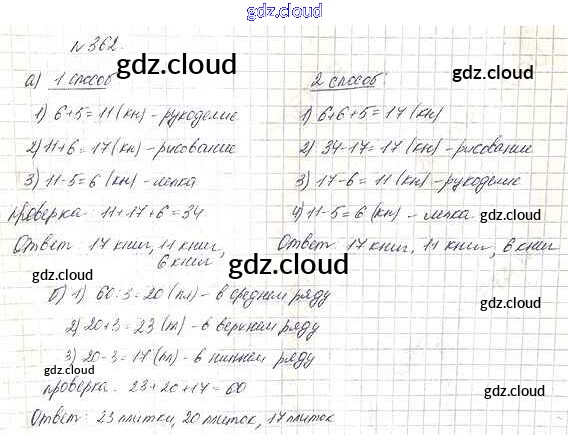 gdz.cloud
N 362.
gdz.cloud
а) 1 способ
2 способ.
gdz.cloud
gdz.cloud
1) 6+5=11 (кн) - рукоделие
1) 6+6+5=17 (кн)
2) 11+6=17 (кн) - рисование
2) 34-17=17 (кн) - рисование
3) 11-5=6 (кн) - лепка
3) 17-6=11 (кн) - рукоделие
Проверка: 11+17+6=34
4) 11-5=6 (кн) - лепка.
gdz.cloud
Ответ: 17 книг, 11 книг,
6 книг
Ответ: 17 книг, 11 книг, 6 книг
gdz.cloud
gdz.cloud
gdz.cloud
б) 1) 60:3=20 (пл) - в среднем ряду
2) 20+3=23 (пл) - в верхнем ряду
3) 20-3=17 (пл) - в нижнем ряду
gdz.cloud
gdz.cloud
Проверка: 23+20+17=60
gdz.cloud
Ответ: 23 плитки, 20 плиток, 17 плиток